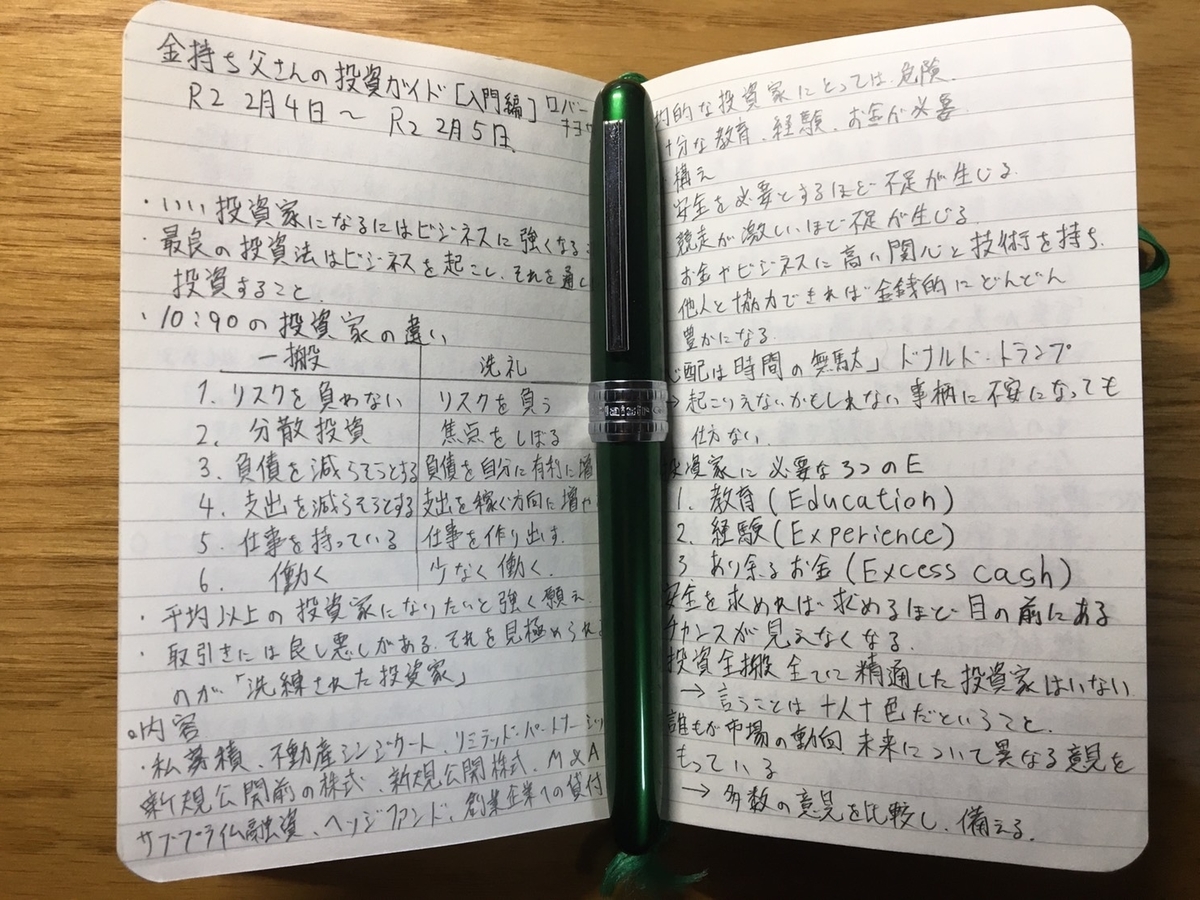 金持ち父さんの投資ガイド[入門編] ロバー
キヨ
R2 2月4日 〜 R2 2月5日.
・いい投資家になるにはビジネスに強くなる
・最良の投資法はビジネスを起こし、それを通し
投資すること.
・10:90の投資家の違い
一搬 洗礼
1. リスクを負わない リスクを負う
2. 分散投資 焦点をしぼる
3. 負債を減らそうとする 負債を自分に有利に増
4. 支出を減らそうとする 支出を稼ぐ方向に増や
5. 仕事を持っている 仕事を作り出す.
6. 働く 少なく働く.
・平均以上の投資家になりたいと強く願え
・取引きには良し悪しがある.それを見極められ
のが「洗練された投資家」
○内容
・私募積、不動産シンジケート、リミテッド・パートナーシッ
新規公開前の株式、新規公開株式、M&A
サブプライム融資、ヘッジファンド、創業企業への貸付
的な投資家にとっては危険.
十分な教育、経験、お金が必要
構え
安全を必要とするほど不足が生じる.
競走が激しいほど不足が生じる.
お金やビジネスに高い関心と技術を持ち、
他人と協力できれば金銭的にどんどん
豊かになる.
心配は時間の無駄」ドナルド・トランプ
→起こりえないかもしれない事柄に不安になっても
仕方ない.
投資家に必要な3つのE
1. 教育(Education)
2. 経験(Experience)
3 あり余るお金(Excess cash)
安全を求めれば求めるほど目の前にある
チャンスが見えなくなる.
投資全搬全てに精通した投資家はいない
→ 言うことは十人十色だということ.
誰もが市場の動向 未来について異なる意見を
もっている
→ 多数の意見を比較し、備える.